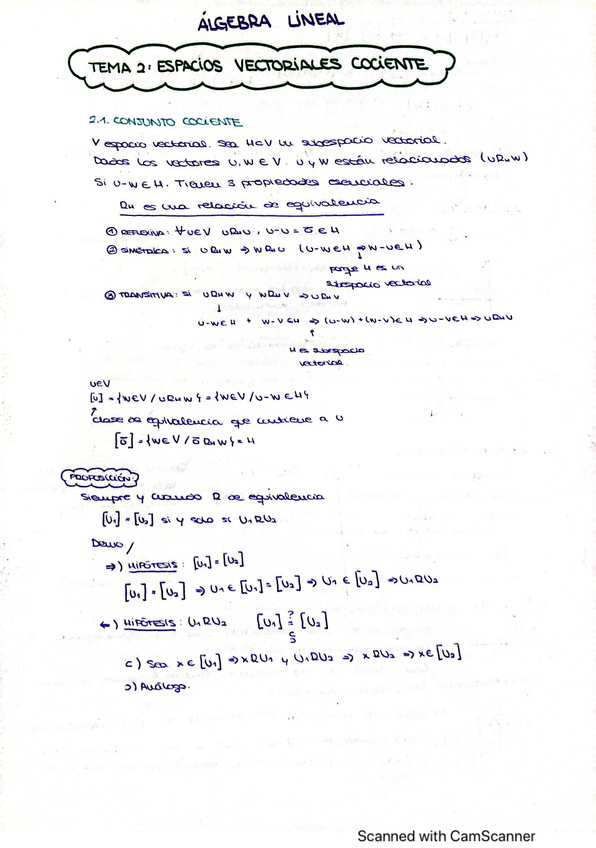 ÁLGEBRA LINEAL
TEMA 2: ESPACIOS VECTORIALES COCIENTE
2.1. CONJUNTO COCIENTE
V espacio vectorial. Sea H⊂V un subespacio vectorial.
Dados los vectores u, w ∈ V. u y w están relacionados (u R_H w)
Si u-w ∈ H. Tienen 3 propiedades esenciales:
R_H es una relación de equivalencia
① REFLEXIVA: ∀u∈V u R_H u, u-u = 0̄ ∈ H
② SIMÉTRICA: si u R_H w ⇒ w R_H u (u-w∈H ⇒ w-u∈H)
↓
porque H es un
subespacio vectorial
③ TRANSITIVA: si u R_H w y w R_H v ⇒ u R_H v
↓
u-w∈H + w-v∈H ⇒ (u-w)+(w-v)∈H ⇒ u-v∈H ⇒ u R_H v
↑
H es subespacio
vectorial
u∈V
[u] = {w∈V / u R_H w} = {w∈V / u-w ∈ H}
↑
clase de equivalencia que contiene a u
[0̄] = {w∈V / 0̄ R_H w} = H
PROPOSICIÓN:
Siempre y cuando R de equivalencia
[u₁] = [u₂] si y solo si u₁ R u₂
Demo /
⇒) HIPÓTESIS: [u₁] = [u₂]
[u₁] = [u₂] ⇒ u₁ ∈ [u₁] = [u₂] ⇒ u₁ ∈ [u₂] ⇒ u₁ R u₂
←) HIPÓTESIS: u₁ R u₂ [u₁] ≟ [u₂]
⊂
⊃
⊂) Sea x ∈ [u₁] ⇒ x R u₁ y u₁ R u₂ ⇒ x R u₂ ⇒ x ∈ [u₂]
⊃) Análogo.
Scanned with CamScanner